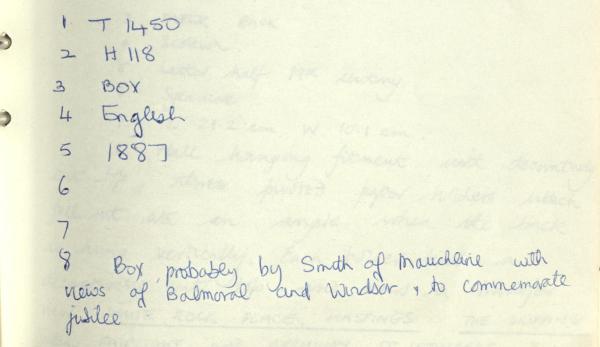 1 T 1450
2 H 118
3 BOX
4 English
5 1887
6
7
8 Box, probably by Smith of Mauchline with
views of Balmoral and Windsor, to commemorate
jubilee